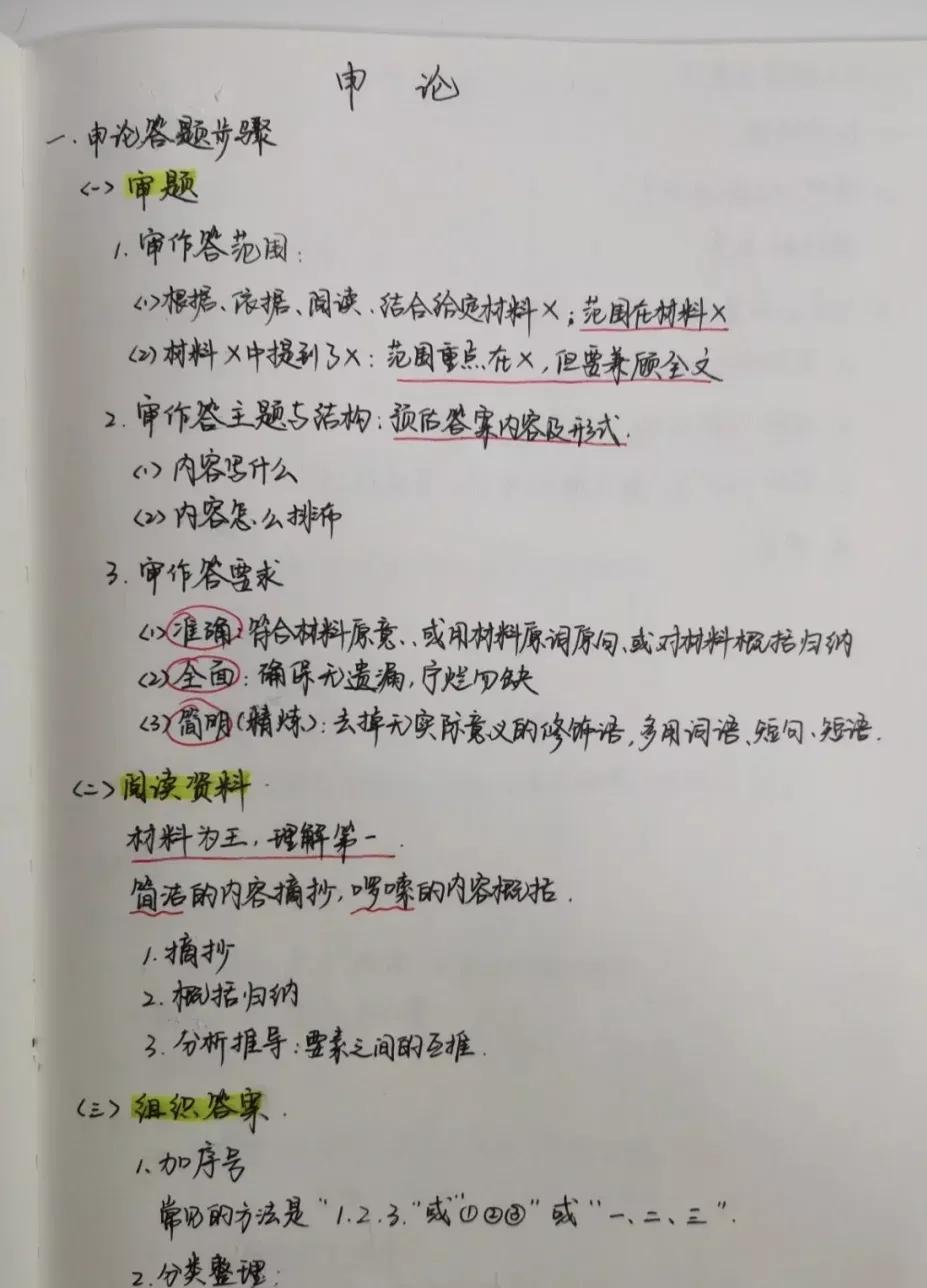 申 论
一.申论答题步骤
(一) 审题
1.审作答范围:
(1)根据、依据、阅读、结合给定材料X;范围在材料X
(2)材料X中提到了X:范围重点在X,但要兼顾全文
2.审作答主题与结构:预估答案内容及形式.
(1)内容写什么
(2)内容怎么排布
3.审作答要求
(1)准确:符合材料原意、或用材料原词原句、或对材料概括归纳
(2)全面:确保无遗漏,宁烂勿缺
(3)简明(精炼):去掉无实际意义的修饰语,多用词语、短句、短语.
(二)阅读资料.
材料为王,理解第一.
简洁的内容摘抄,啰嗦的内容概括.
1.摘抄
2.概括归纳
3.分析推导:要素之间的互推.
(三)组织答案.
1.加序号
常见的方法是"1.2.3."或"①②③"或"一、二、三".
2.分类整理: